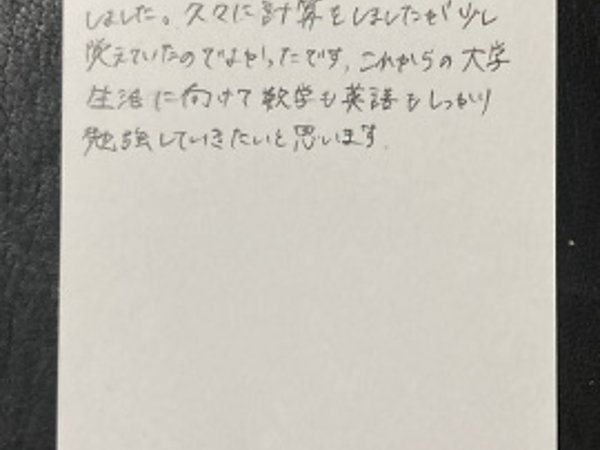 しました。久々に計算をしましたが少し
覚えていたのでよかったです。これからの大学
生活に向けて数学も英語もしっかり
勉強していきたいと思います.